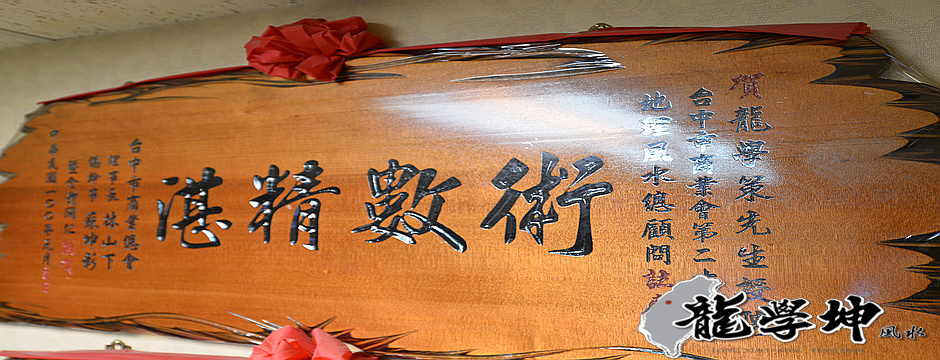 賀龍學策先生授
台中市商業會第二
地理風水總顧問誌
術數精湛
台中市商業總會
理事長 林山下
總幹事 蘇坤彩
暨全體同仁
中華民國一〇〇年元月
龍學坤
風水